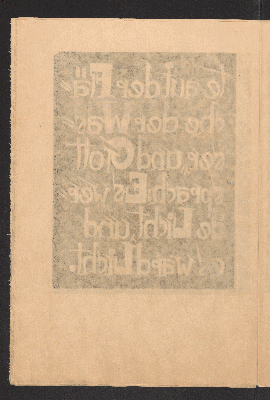 te auf der Flä-
che der Was-
ser, und Gott
sprach: Es wer-
de Licht, und
es ward Licht.